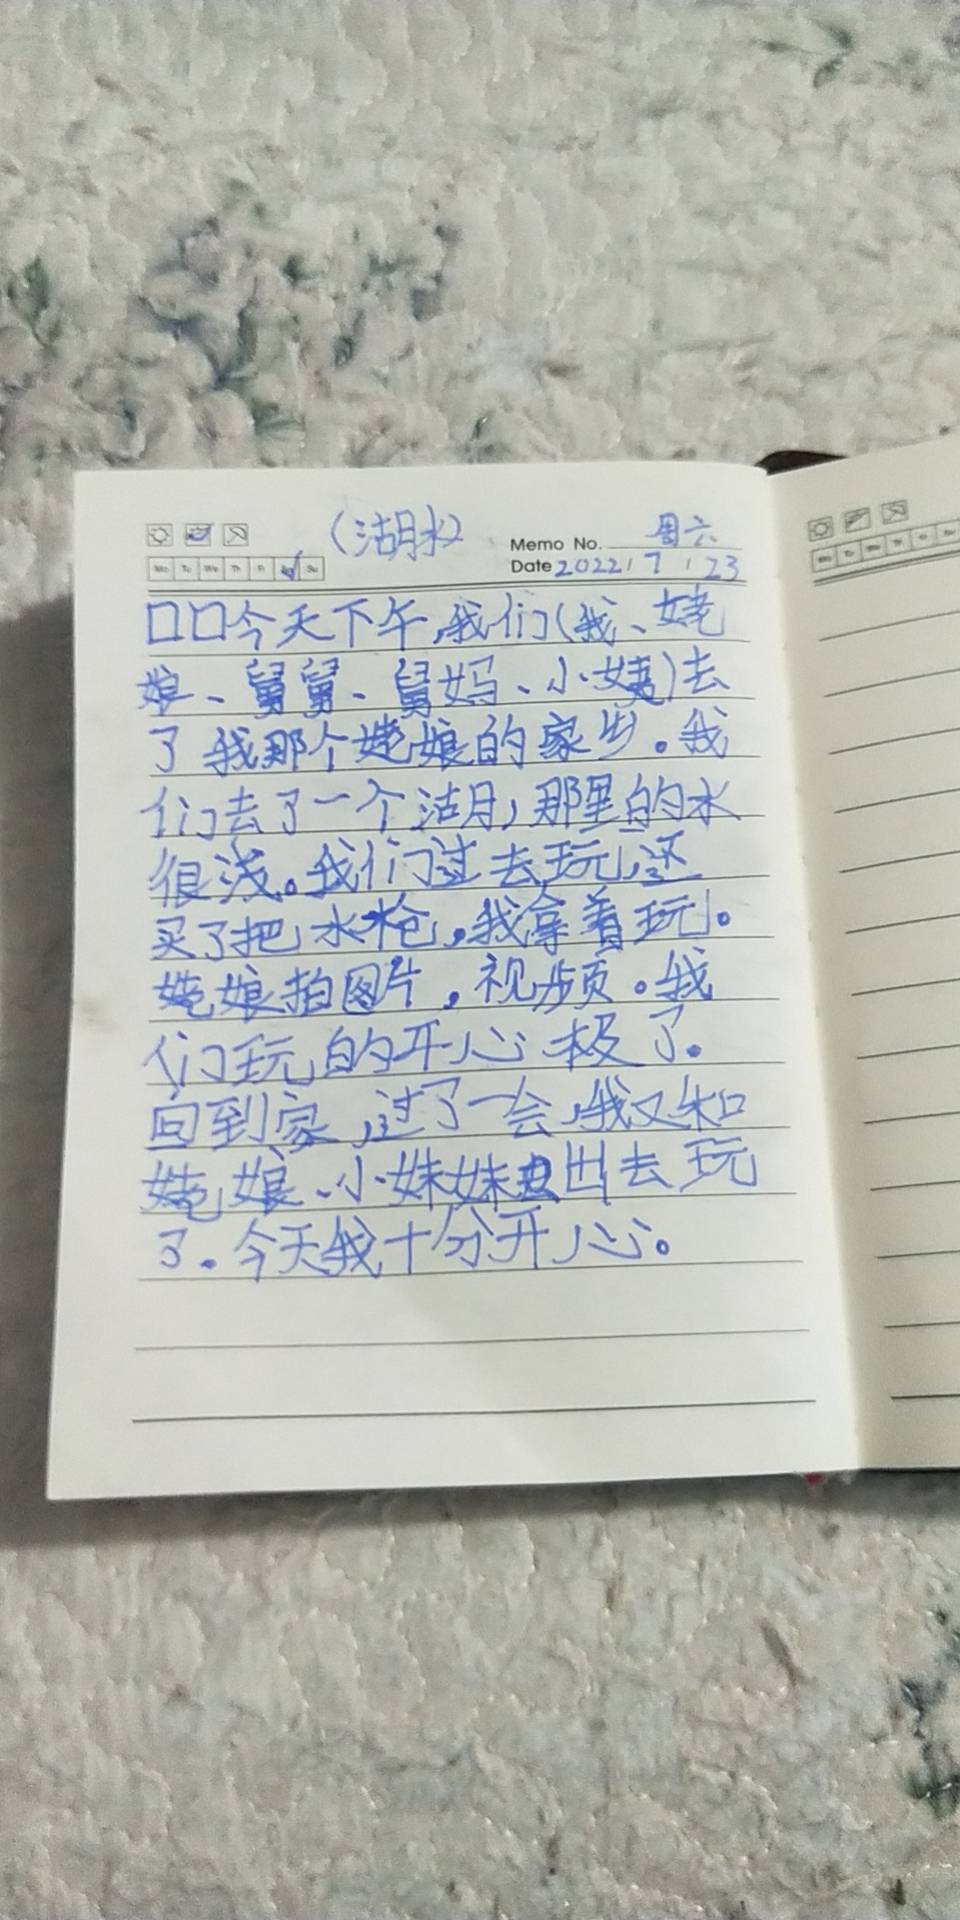 (湖水)
Memo No. 周六
Mo Tu We Th Fr Sa Su
Date 2022 / 7 / 23
口口今天下午,我们(我、姥
娘、舅舅、舅妈、小姨)去
了我那个姥娘的家乡。我
们去了一个湖,那里的水
很浅。我们过去玩,还
买了把水枪,我拿着玩。
姥娘拍图片,视频。我
们玩的开心极了。
回到家,过了一会,我又和
姥娘、小妹妹出去玩
了。今天我十分开心。